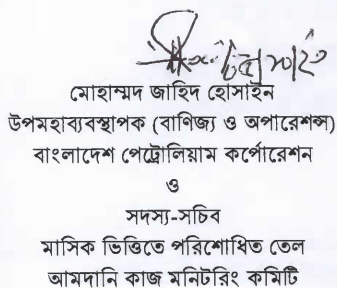 মোহাম্মদ জাহিদ হোসাইন
উপমহাব্যবস্থাপক (বাণিজ্য ও অপারেশন্স)
বাংলাদেশ পেট্রোলিয়াম কর্পোরেশন
ও
সদস্য-সচিব
মাসিক ভিত্তিতে পরিশোধিত তেল
আমদানি কাজ মনিটরিং কমিটি